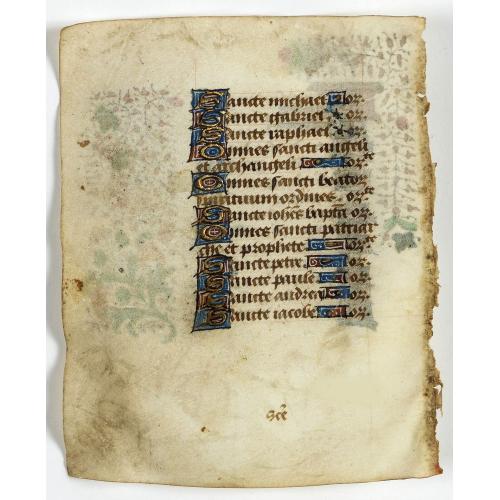 Sancte michael or.
Sancte gabriel or.
Sancte raphael or.
Omnes sancti angeli
et archangeli orate
Omnes sancti beator
spirituum ordines. orate
Sancte iohēs bapta or.
Omnes sancti patriar
che et prophete orate
Sancte petre or.
Sancte paule or.
Sancte andrea or.
Sancte iacobe or.
Scē